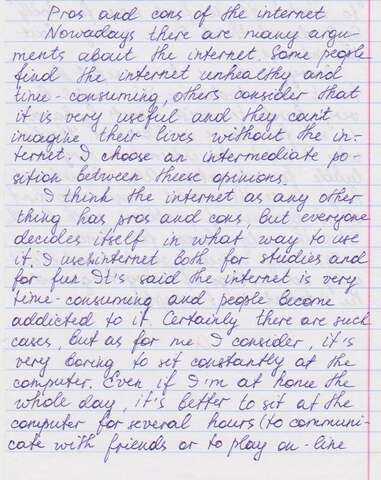 Pros and cons of the internet
Nowadays there are many argu-
ments about the internet. Some people
find the internet unhealthy and
time-consuming, others consider that
it is very useful and they can't
imagine their lives without the in-
ternet. I choose an intermediate po-
sition between theese opinions.
I think the internet as any other
thing has pros and cons, but everyone
decides itself in what way to use
it. I use internet both for studies and
for fun. It's said the internet is very
time-consuming and people become
addicted to it. Certainly there are such
cases, but as for me I consider, it's
very boring to sit constantly at the
computer. Even if I'm at home the
whole day, it's better to sit at the
computer for several hours (to communi-
cate with friends or to play on-line